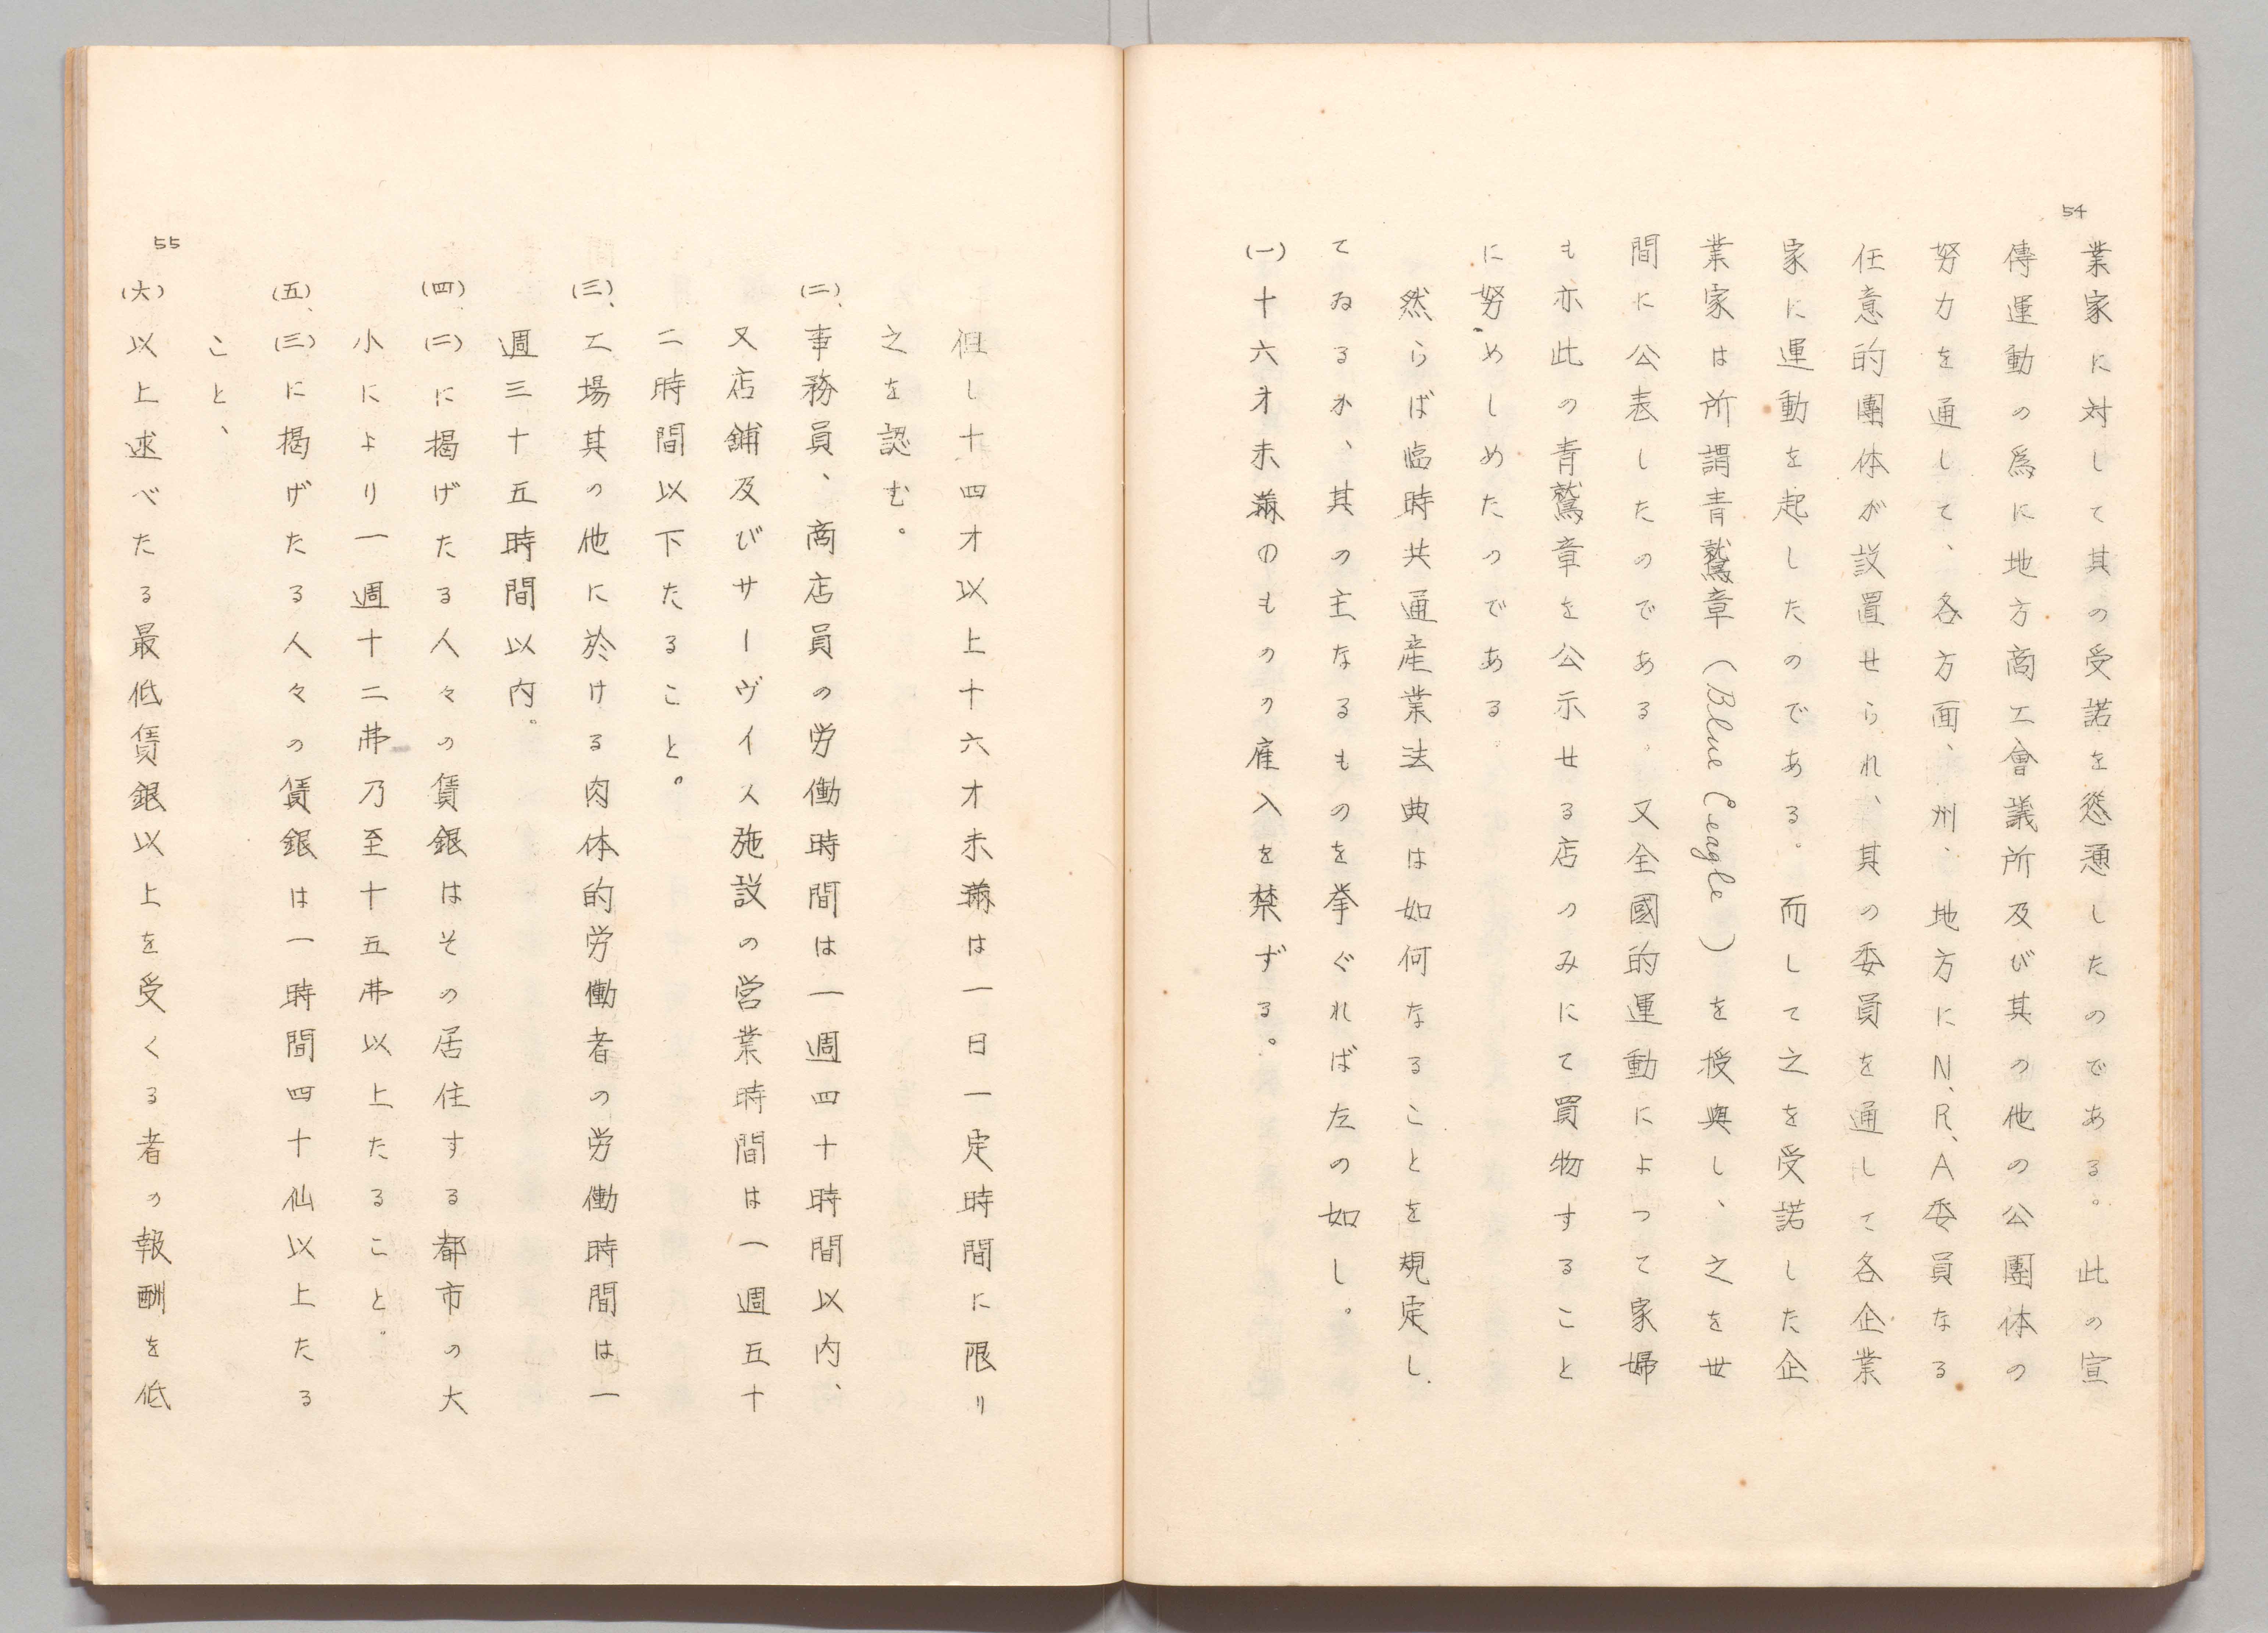 54
業家に対して其の受諾を慫慂したのである。此の宣
傳運動の為に地方商工會議所及び其の他の公團体の
努力を通して、各方面、州、地方にN、R、A委員なる
任意的團体が設置せられ、其の委員を通して各企業
家に運動を起したのである。而して之を受諾した企
業家は所謂青鷲章（Blue Eeagle）を授與し、之を世
間に公表したのである。又全國的運動によつて家婦
も亦此の青鷲章を公示せる店のみにて買物すること
に努めしめたのである。
然らば臨時共通産業法典は如何なることを規定し
てゐるか、其の主なるものを挙ぐれば左の如し。
(一)十六才未満のものの雇入を禁ずる。
但し十四才以上十六才未満は一日一定時間に限り
之を認む。
(二)、事務員、商店員の労働時間は一週四十時間以内、
又店舗及びサーヴイス施設の営業時間は一週五十
二時間以下たること。
(三)、工場其の他に於ける肉体的労働者の労働時間は一
週三十五時間以内。
(四)、(二)に掲げたる人々の賃銀はその居住する都市の大
小により一週十二弗乃至十五弗以上たること。
(五)、(三)に掲げたる人々の賃銀は一時間四十仙以上たる
こと、
55
(六)以上述べたる最低賃銀以上を受くる者の報酬を低